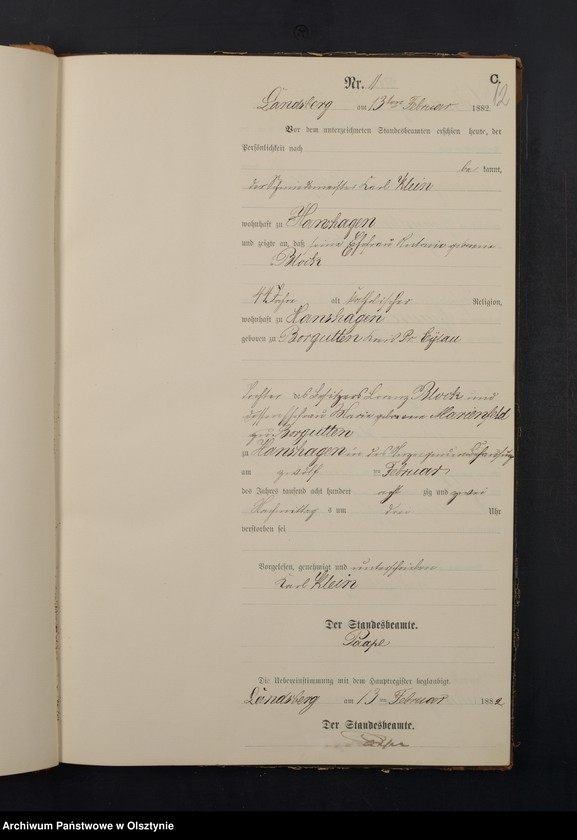 C.
12
Nr. 11
Landsberg am 13ten Februar 1882.
Vor dem unterzeichneten Standesbeamten erschien heute, der
Persönlichkeit nach
be kannt,
der Schmiedemeister Karl Klein
wohnhaft zu Hanshagen
und zeigte an, daß seine Ehefrau geborene
Block
44 Jahre alt katholischer Religion,
wohnhaft zu Hanshagen
geboren zu Borgutten Kreis Pr. Eylau
Tochter des Besitzers Lorenz Block und
dessen Ehefrau Maria geborene Marienfeld
zu Borgutten
zu Hanshagen in des Behausung
am zwölf ten Februar
des Jahres tausend acht hundert acht zig und zwei
Nachmittag s um drei Uhr
verstorben sei
Vorgelesen, genehmigt und unterschrieben
Karl Klein
Der Standesbeamte.
Paape
Die Uebereinstimmung mit dem Hauptregister beglaubigt.
Landsberg am 13 ten Februar 1882
Der Standesbeamte.
Paape
Archiwum Państwowe w Olsztynie